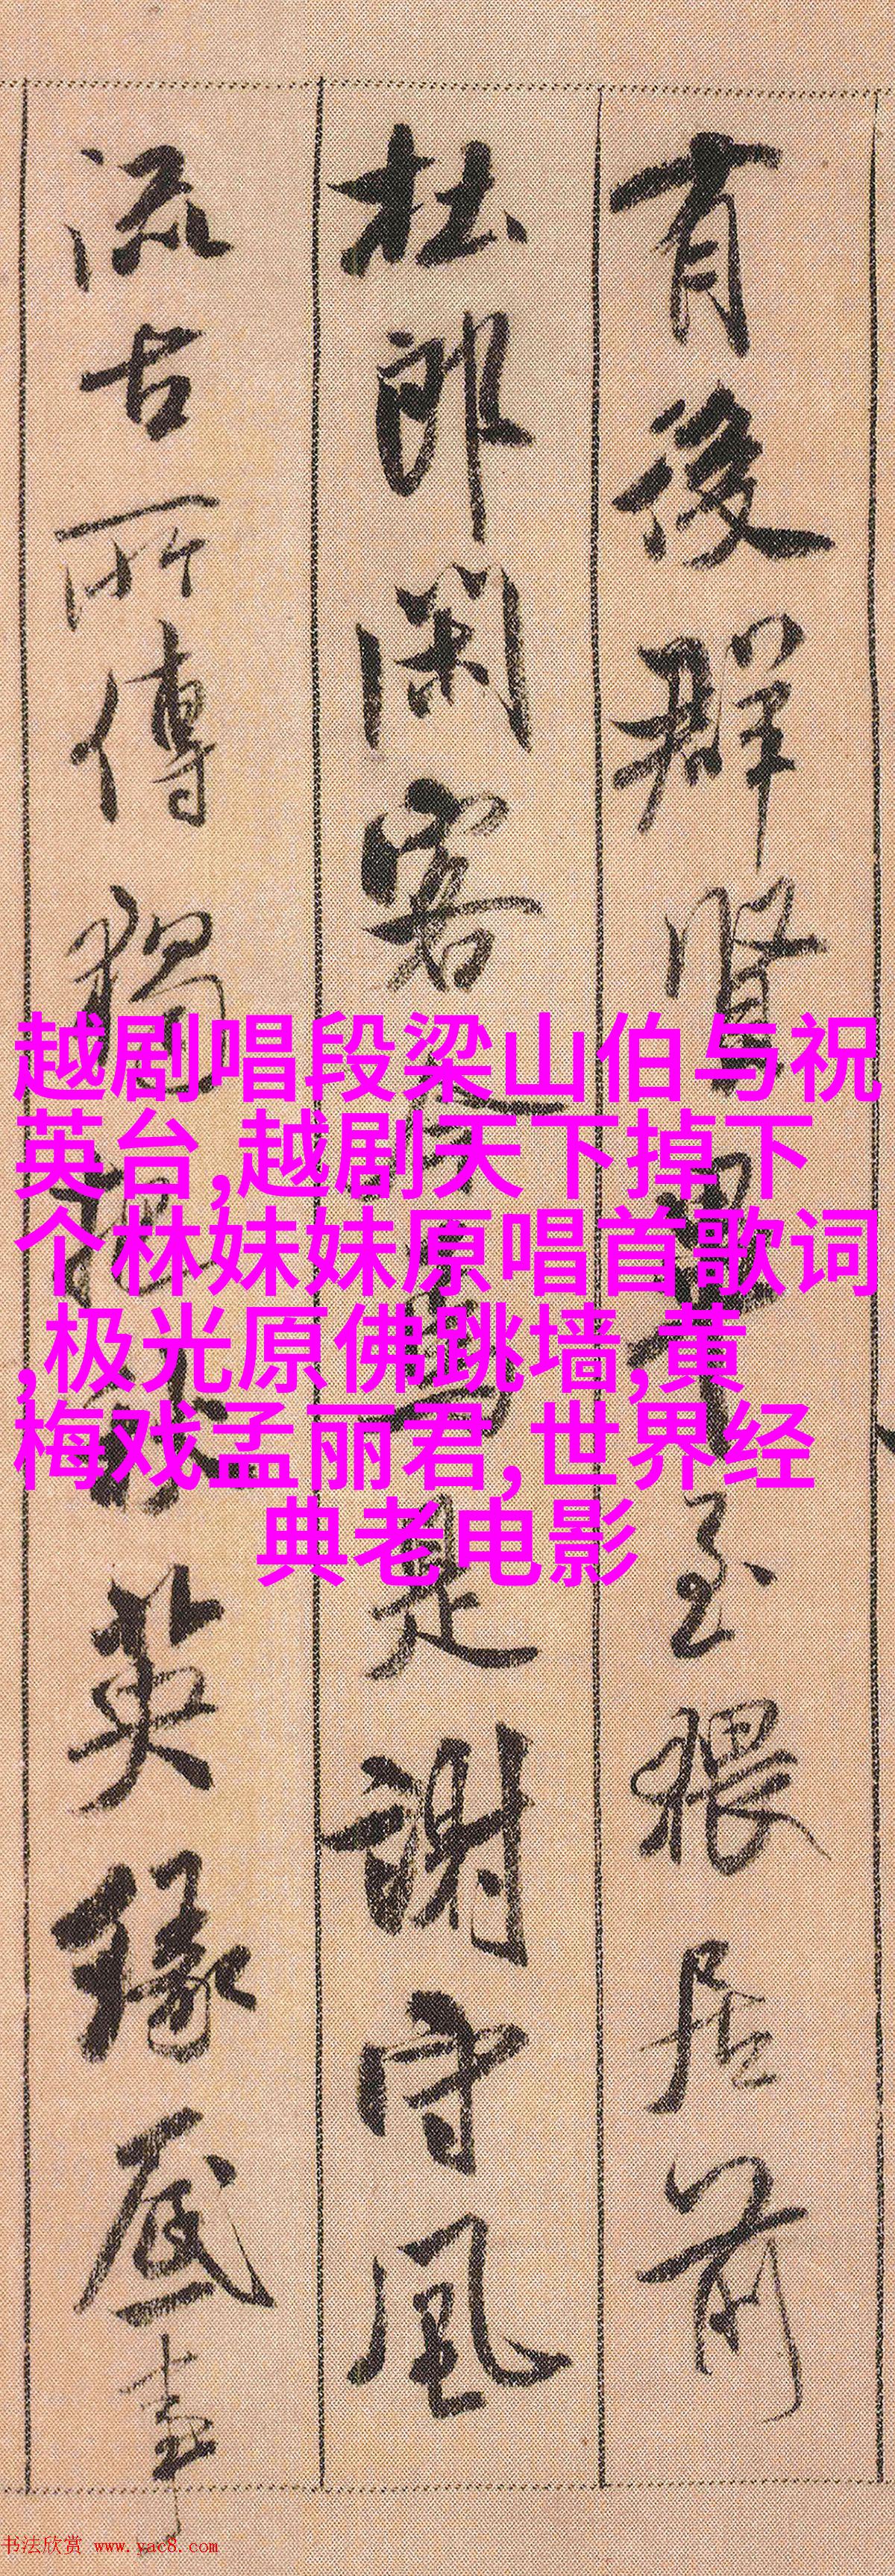 有後群賢畢至猥居前
杜郎閑客今焉是謝守風
流古所傳獨把秋英緣底事
越剧唱段梁山伯与祝
英台,越剧天下掉下
个林妹妹原唱首歌词
,极光原佛跳墙,黄
梅戏孟丽君,世界经
典老电影
书法欣赏 www.yac8.com